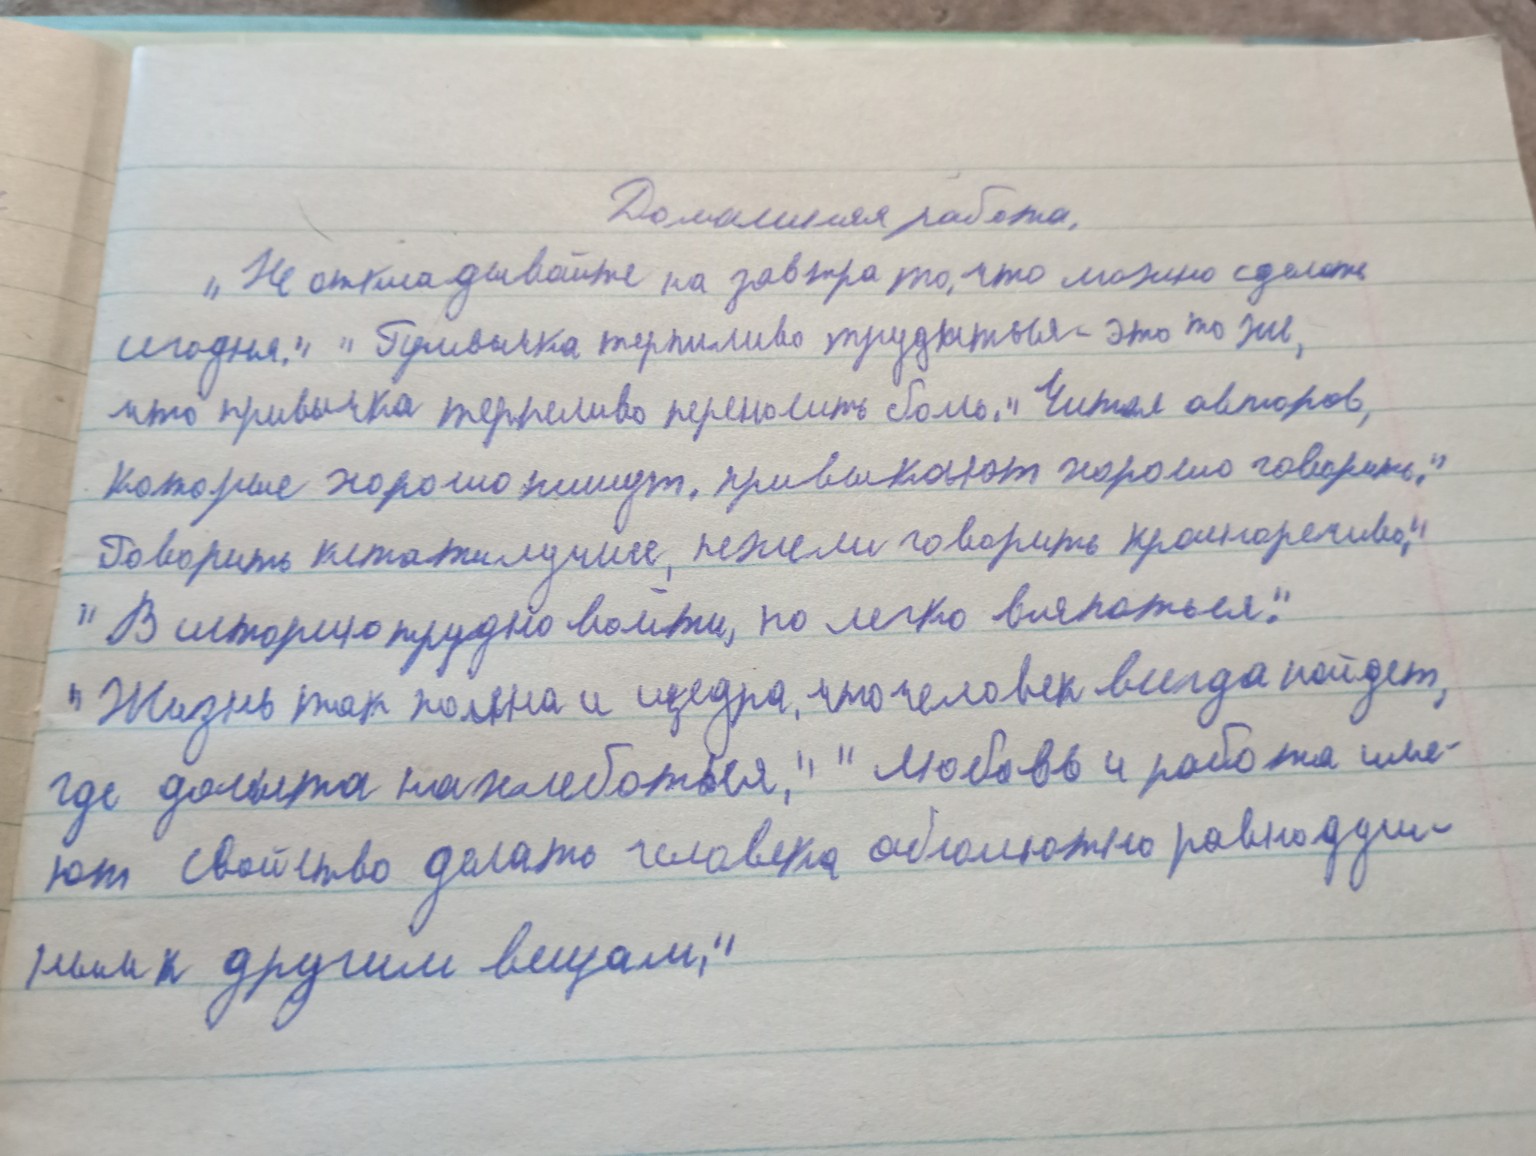 Домашняя работа.
„Не откладывайте на завтра то, что можно сделать
сегодня." "Привычка терпиливо трудиться - это то же,
что привычка терпеливо переносить боль." Читая авторов,
которые хорошо пишут, привыкают хорошо говорить."
Говорить кстати лучше, нежели говорить красноречиво."
"В историю трудно войти, но легко вляпаться."
"Жизнь так полна и щедра, что человек всегда найдет,
где досыта нахлебаться." "Любовь и работа име-
ют свойство делать человека абсолютно равнодуш-
ным к другим вещам."